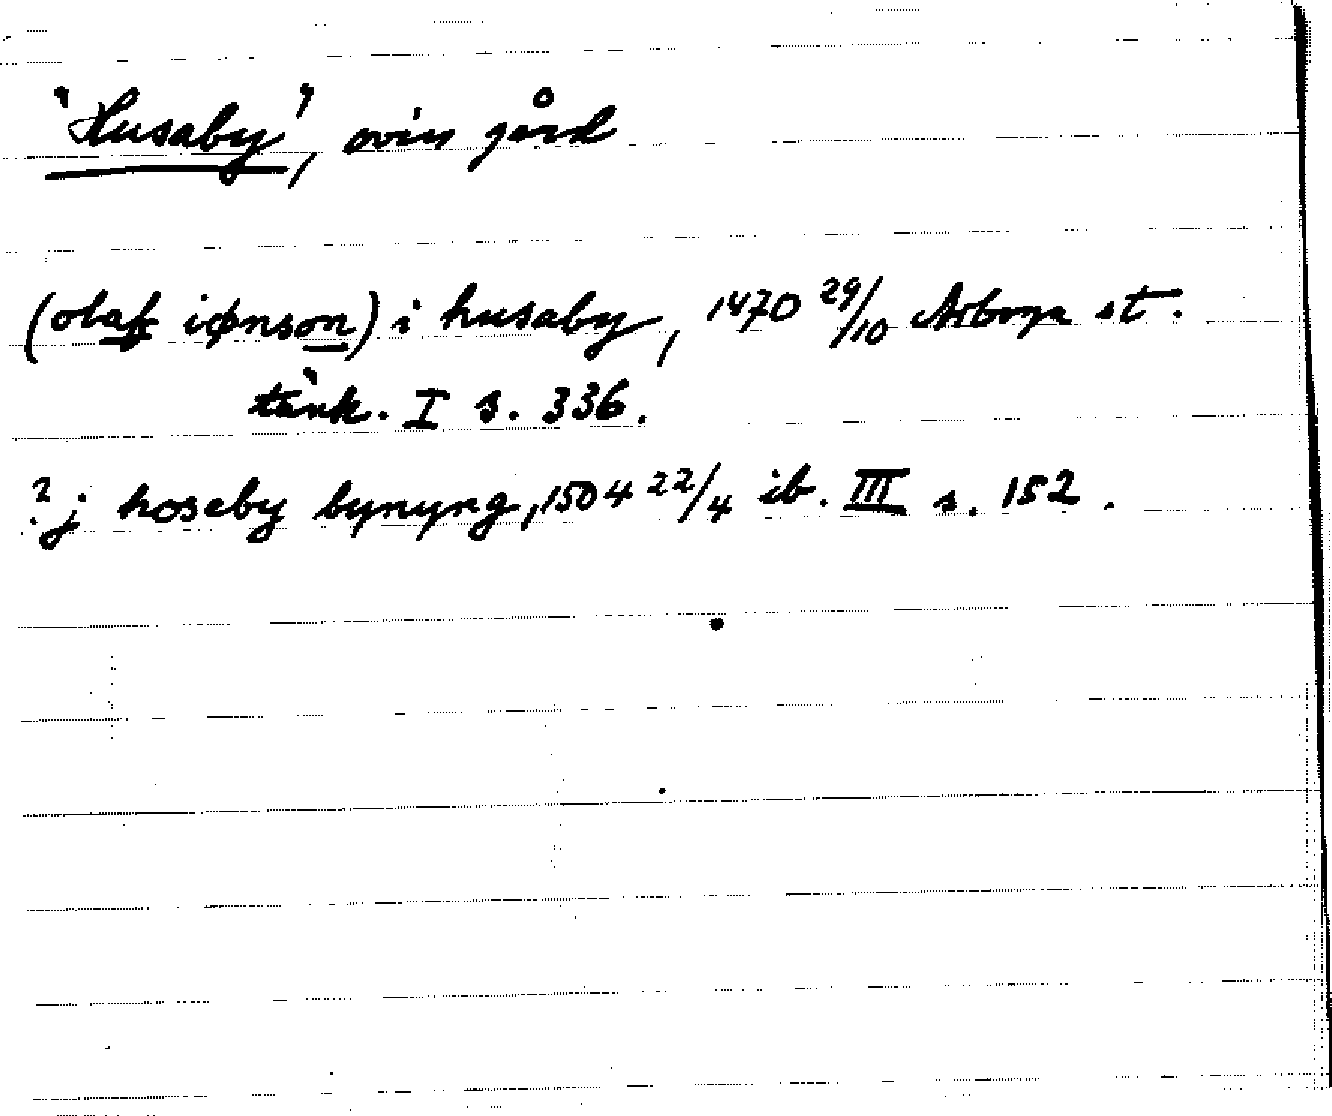 'Husaby', oviss gård
(olaf iønson) i husaby, 1470 29/10 Arboga st.
tänk. I s. 336.
? j hoseby bynyng, 1504 22/4 ib. III s. 152.